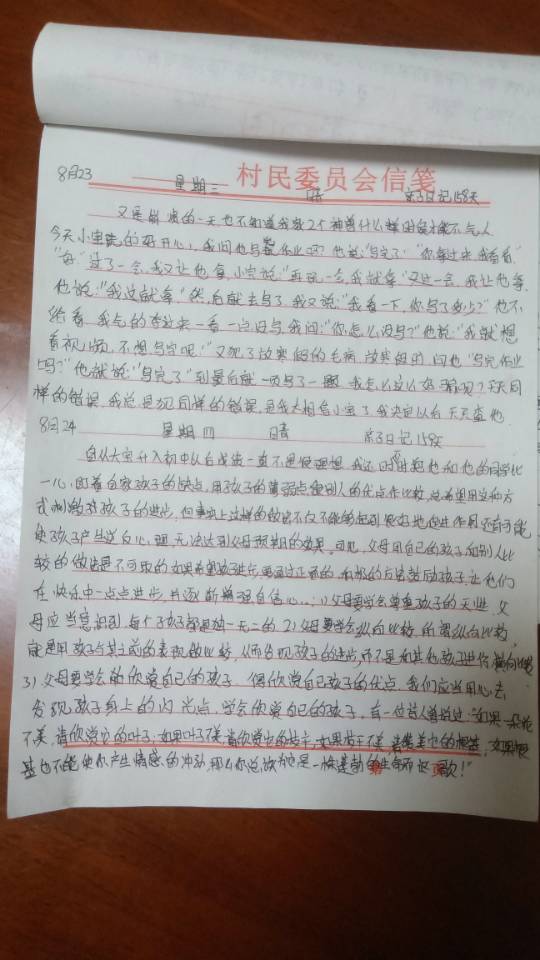 村民委员会信笺
8月23 星期三 晴 亲子日记158天
又是崩溃的一天也不知道我家2个神兽什么样时候才能不气人
今天小宝玩的好开心，我问他写完作业吗？他说："写完了""你拿过来我看看"
"好"过了一会，我又让他拿，小宝说："再玩一会我就拿"又过一会，我让他拿
他说："我这就拿"然后就去写了，我又说："我看一下，你写了多少？"他不
给看，我气的拿过来一看一字没写，我问："你怎么没写？"他说："我就想
看视频，不想写字呢！"又犯了放寒假的毛病，放寒假时，问他"写完作业
吗？"他就说："写完了"到最后就一页写了一题，我怎么这么好骗呢？天天同
样的错误，我总是犯同样的错误，是我太相信小宝了，我决定以后天天查他
8月24 星期四 晴 亲子日记159天
自从大宝升入初中以后成绩一直不是很理想，我还时常把他和他的同学比
一心盯着自家孩子的缺点，用孩子的薄弱点和别人的优点作比较，总希望用这种方
式刺激孩子的进步，但事实上这样的做法不仅不能够起到很好地促进作用还有可能
使孩子产生逆反心理，无法达到父母预期的效果，可见，父母用自己的孩子和别人比
较的做法是不可取的如果希望孩子进步，要通过正面的、积极的方法鼓励孩子，让他们
在快乐中一点点进步，并逐渐增强自信心…：1）父母要学会尊重孩子的天性，父
母应当意识到每个孩子都是独一无二的 2）父母要学会纵向比较，所谓纵向比较，
就是用孩子与其之前的表现做比较，从而发现孩子的进步，而不是和其他孩子进行横向比较
3）父母要学会的欣赏自己的孩子，偶欣赏自己孩子的优点，我们应当用心去
发现孩子身上的闪光点，学会欣赏自己的孩子，有一位哲人曾说过："如果一朵花
不美，请欣赏它的叶子；如果叶子不美，请欣赏它的枝干，如果枝干不美，请赞美它的根基，如果根
基也不能使你产生情感的冲动，那么你总该为它是一株蓬勃的生命而讴歌！"